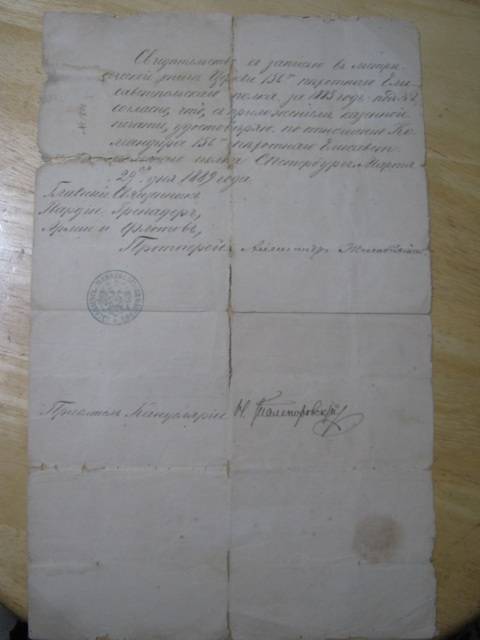 Свидѣтельство съ записью въ метри-
ческой книгѣ Церкви 156го пѣхотнаго Ели-
саветпольскаго полка за 1885 годъ
согласно, что, съ приложеніемъ казенной
печати, удостовѣряю по отношенію Ко-
мандира 156го пѣхотнаго Елисавет-
польскаго полка. С. Петербургъ. Марта
29го дня 1889 года.
Главный Священникъ
Гвардіи, Гренадеръ,
Арміи и Флотовъ,
Протоіерей Александръ Желобовскій
Правитель Канцеляріи